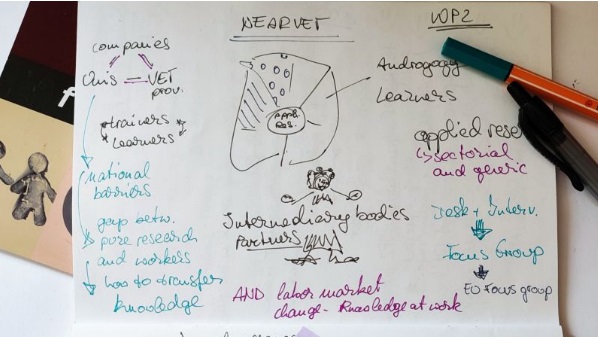 NEARVET
WP2
companies
Unis — VET
prov.
trainers
learners
national
barriers
gap betw.
pure research
and workers
how to transfer
knowledge
Appl.
Res.
Andragogy
Learners
applied rese
↳ sectorial
and generic
Intermediary bodies
partners
Desk + Interv.
Focus Group
EU Focus group
AND labor market
change - Knowledge at work